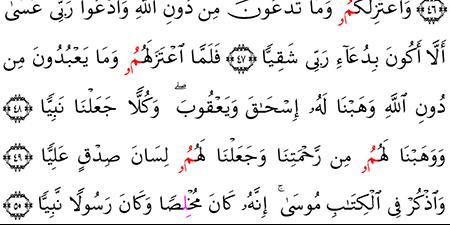 ﴿٤٦﴾ وَأَعْتَزِلُكُمُۥ وَمَا تَدْعُونَ مِن دُونِ ٱللَّهِ وَأَدْعُواْ رَبِّى عَسَىٰ
أَلَّا أَكُونَ بِدُعَآءِ رَبِّى شَقِيًّا ﴿٤٧﴾ فَلَمَّا ٱعْتَزَلَهُمُۥ وَمَا يَعْبُدُونَ مِن
دُونِ ٱللَّهِ وَهَبْنَا لَهُۥ إِسْحَـٰقَ وَيَعْقُوبَ ۖ وَكُلًّا جَعَلْنَا نَبِيًّا ﴿٤٨﴾
وَوَهَبْنَا لَهُمُۥ مِن رَّحْمَتِنَا وَجَعَلْنَا لَهُمُۥ لِسَانَ صِدْقٍ عَلِيًّا ﴿٤٩﴾
وَٱذْكُرْ فِى ٱلْكِتَـٰبِ مُوسَىٰ ۚ إِنَّهُۥ كَانَ مُخْلِصًا وَكَانَ رَسُولًا نَّبِيًّا ﴿٥٠﴾